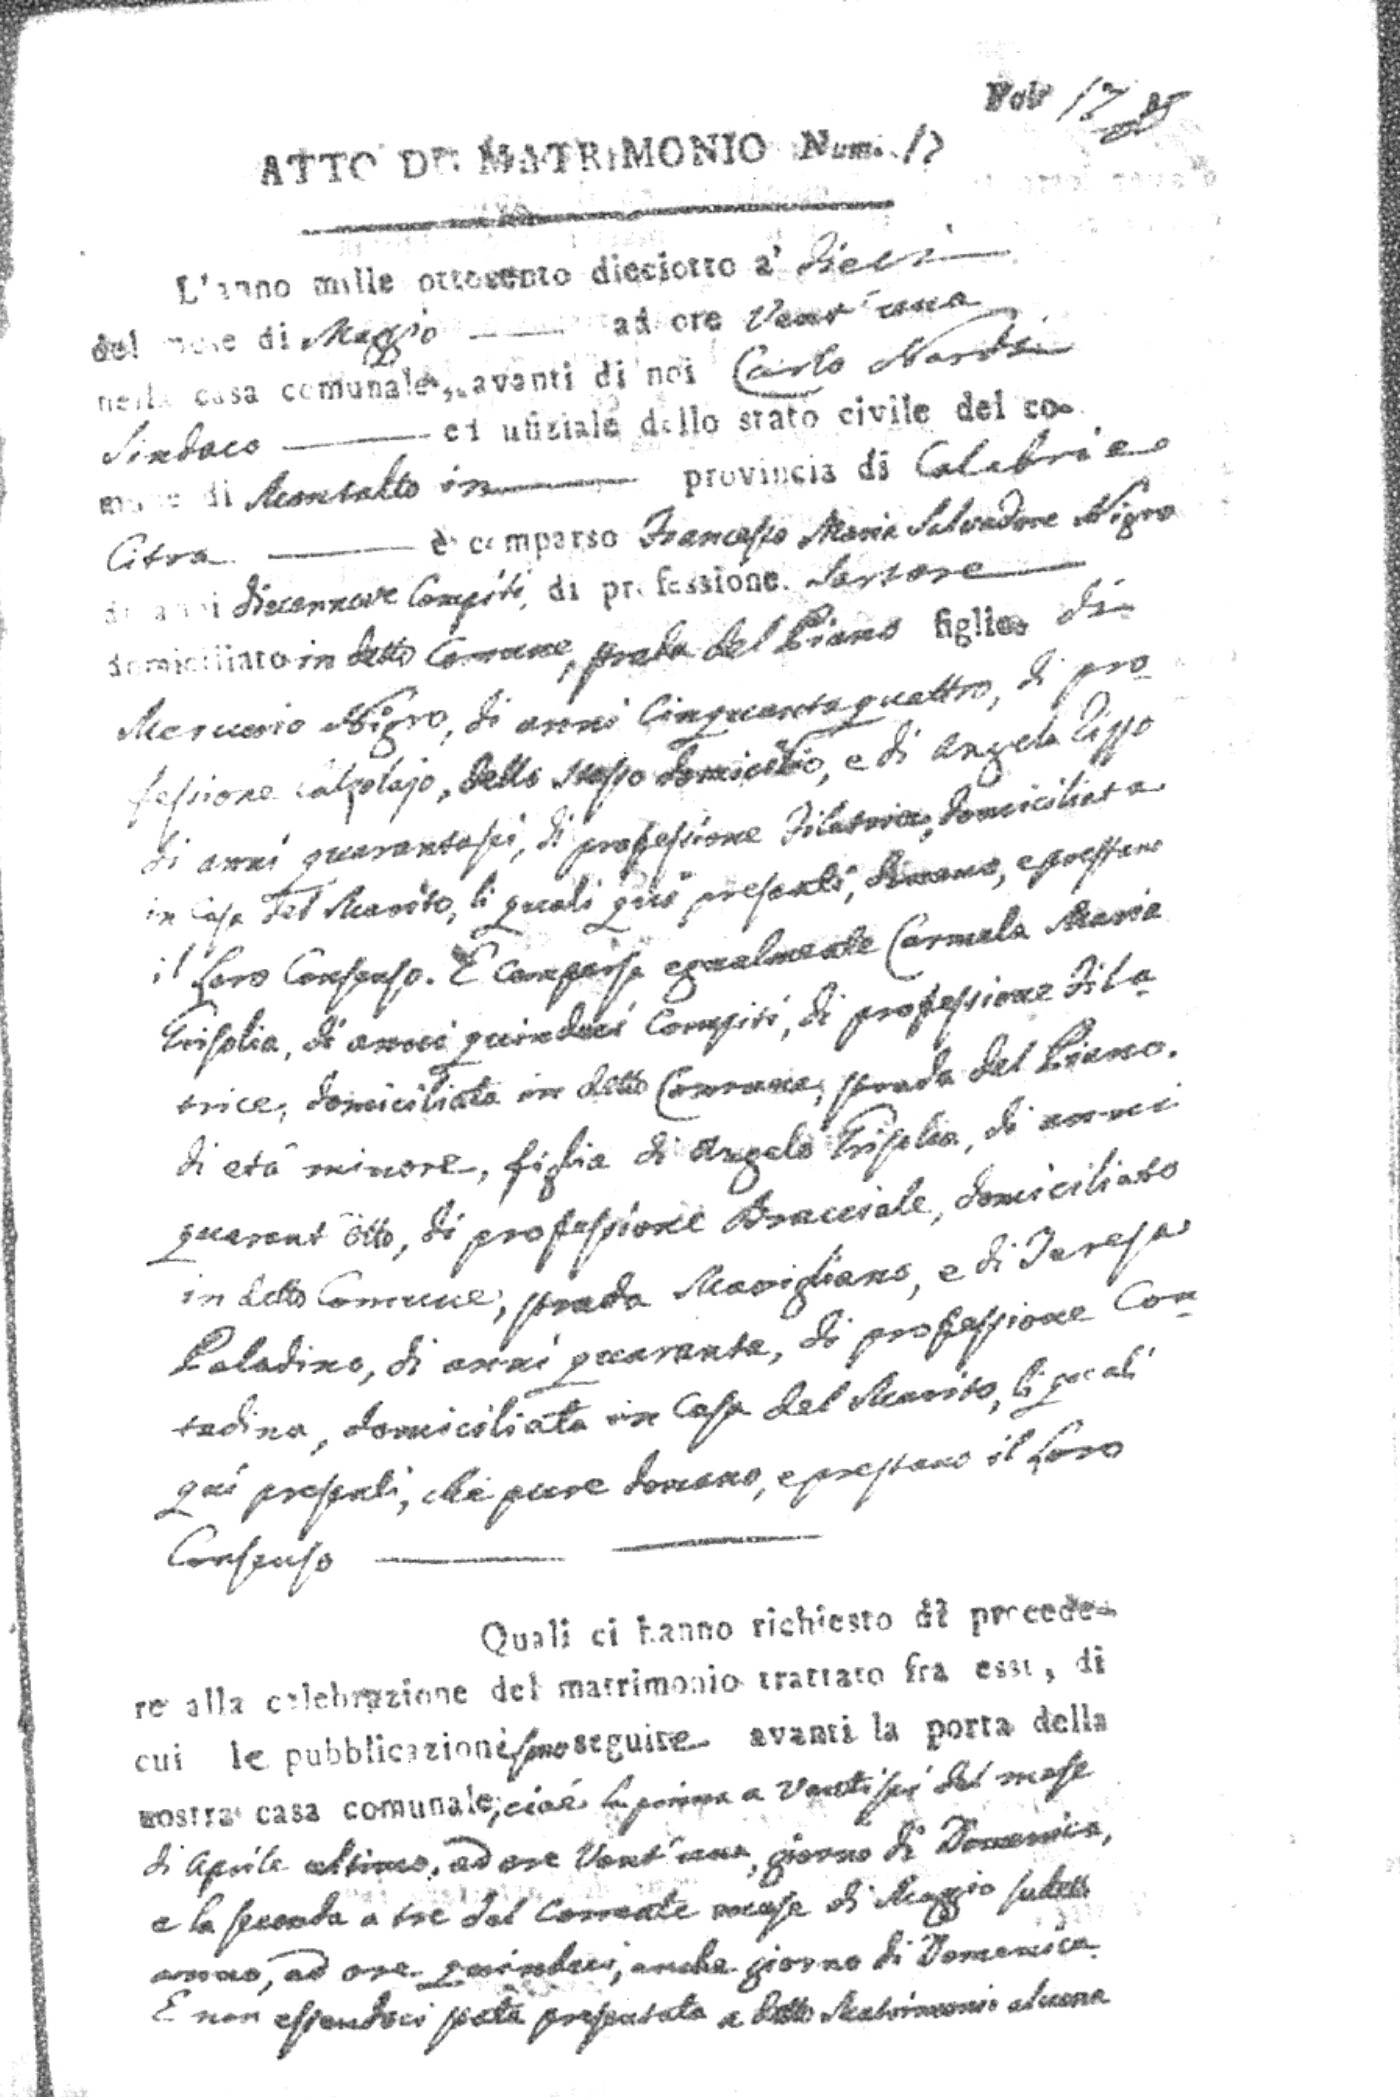 Fol. 17
ATTO DI MATRIMONIO Num. 17
L'anno mille ottocento dieciotto a' dieci
del mese di Maggio ad ore Vent'una
nella casa comunale, avanti di noi Carlo Nardi
Sindaco ed ufiziale dello stato civile del co-
mune di Montalto in provincia di Calabria
Citra è comparso Francesco Maria Salvadore Nigro
di anni diecennove Compiti, di professione Sartore
domiciliato in detto Comune, strada del Piano figlio di
Mercurio Nigro, di anni Cinquantaquattro, di pro-
fessione calzolajo, dello stesso domicilio, e di Angela
di anni quarantasei, di professione Filatrice, domiciliata
in Casa del Marito, li quali quì presenti, e prestano
il Loro Consenso. E comparsa egualmente Carmela Maria
Grisolia, di anni quindeci Compiti, di professione Fila-
trice, domiciliata in detto Comune, strada del Piano.
di età minore, figlia di Angelo Grisolia, di anni
quarant'otto, di professione Bracciale, domiciliato
in detto Comune, strada Marigliano, e di Teresa
Paladino, di anni quaranta, di professione Con-
tadina, domiciliata in Casa del Marito, li quali
quì presenti, che pure e prestano il Loro
Consenso
Quali ci hanno richiesto di procede-
re alla celebrazione del matrimonio trattato fra essi, di
cui le pubblicazioni sono seguite avanti la porta della
nostra casa comunale, cioè la prima a Ventisei del mese
di Aprile ultimo, ad ore Vent'una, giorno di Domenica,
e la seconda a tre del Corrente mese di Maggio sudetto
anno, ad ore quindeci, anche giorno di Domenica.
E non essendoci stata presentata a detto Matrimonio alcuna